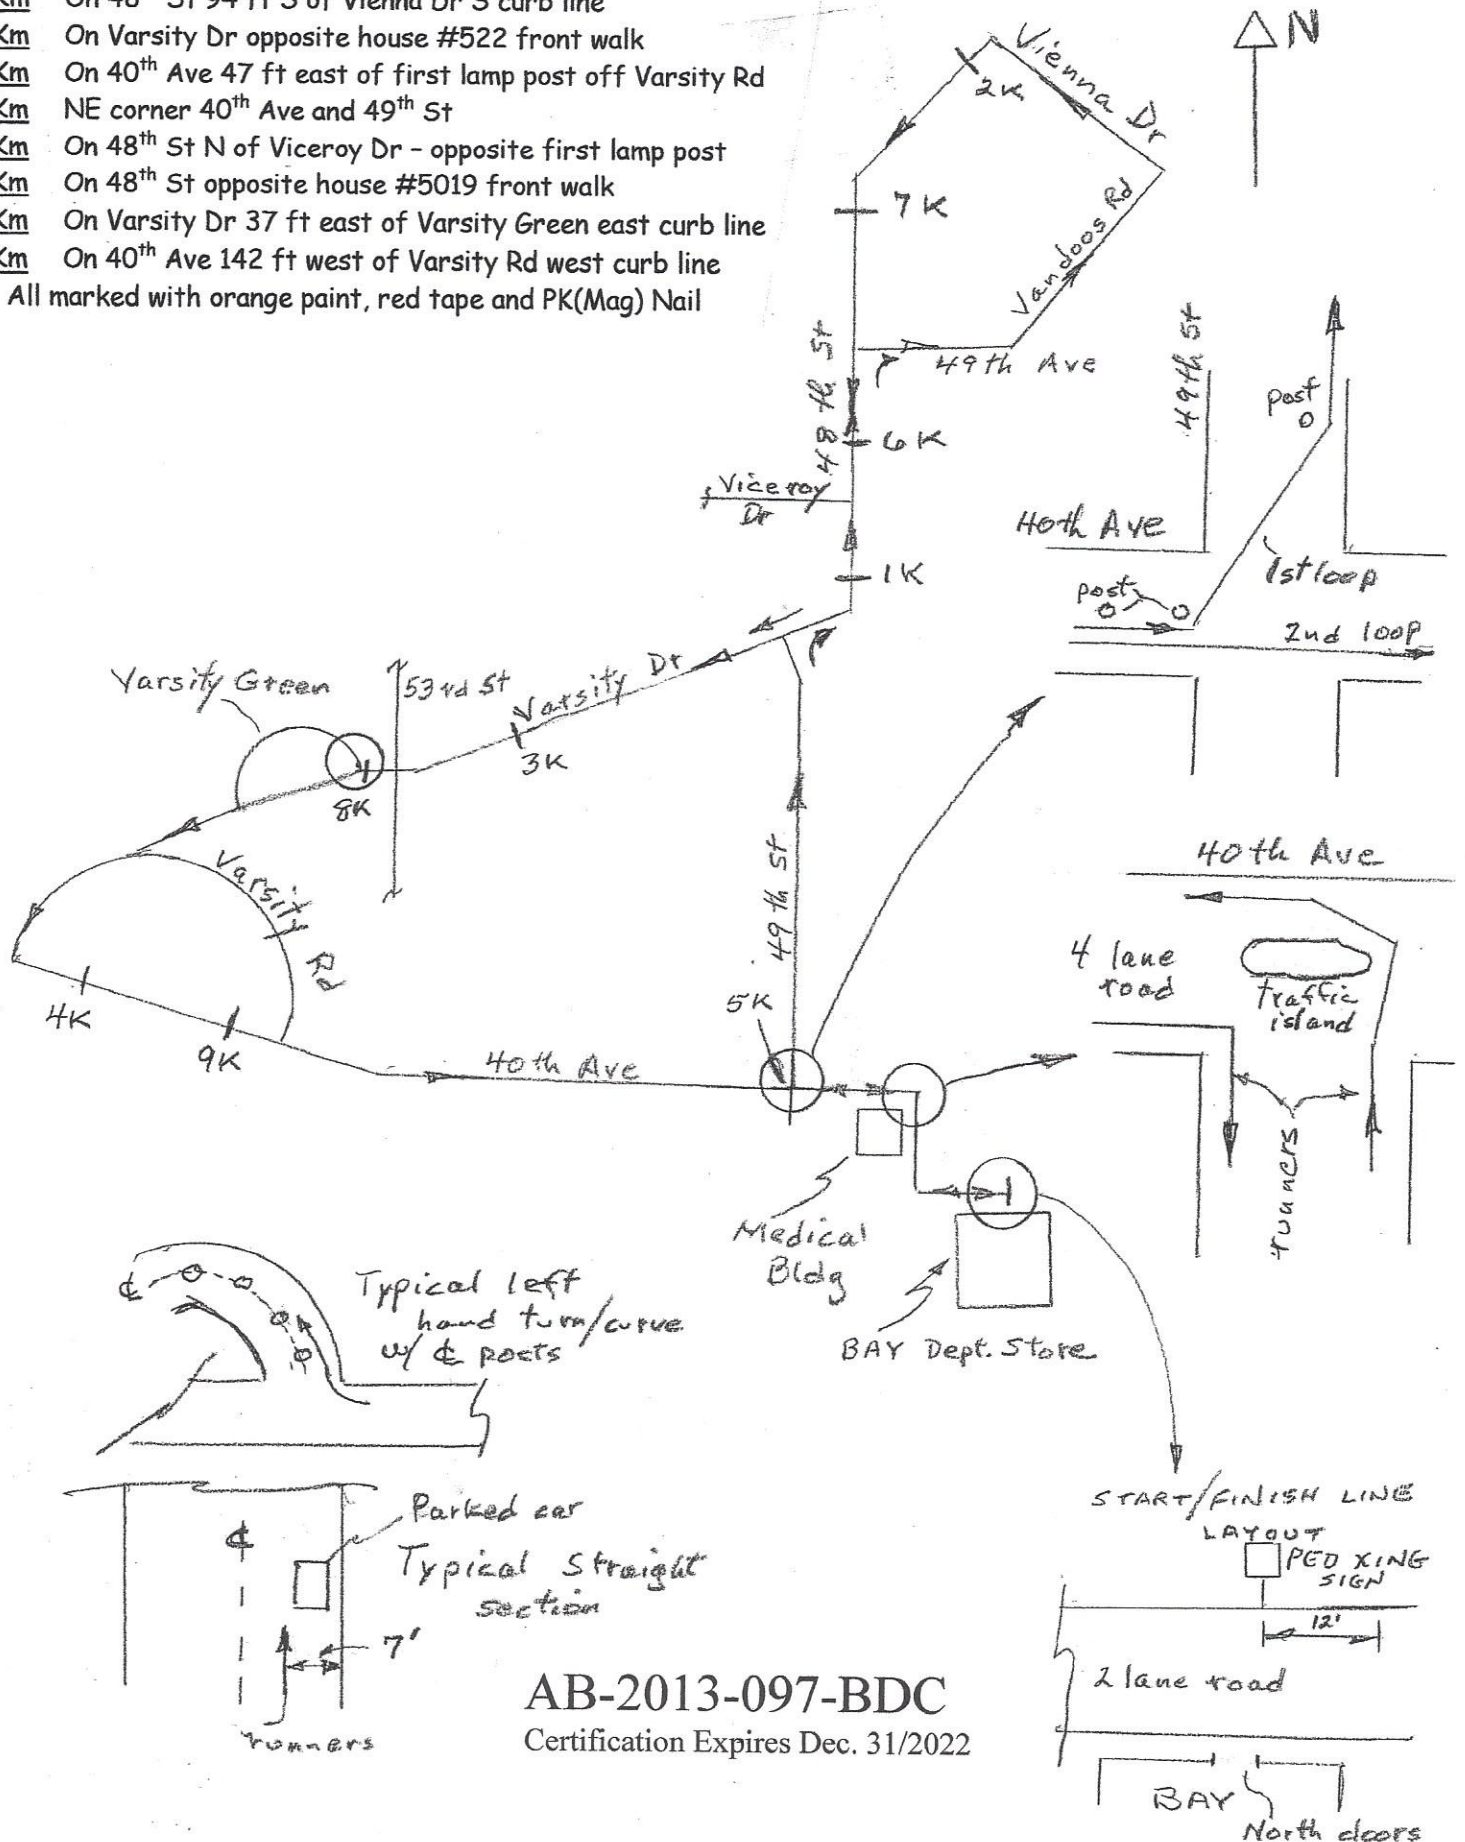 Km On 48th St 94 ft S of Vienna Dr S curb line
Km On Varsity Dr opposite house #522 front walk
Km On 40th Ave 47 ft east of first lamp post off Varsity Rd
Km NE corner 40th Ave and 49th St
Km On 48th St N of Viceroy Dr - opposite first lamp post
Km On 48th St opposite house #5019 front walk
Km On Varsity Dr 37 ft east of Varsity Green east curb line
Km On 40th Ave 142 ft west of Varsity Rd west curb line
All marked with orange paint, red tape and PK(Mag) Nail
N
Vienna Dr
2K
7K
Vandoos Rd
49th Ave
48th St
6K
Viceroy
Dr
1K
49th St
post
40th Ave
1st loop
post
2nd loop
Varsity Green
53rd St
Varsity Dr
3K
8K
Varsity Rd
49th St
4K
9K
5K
40th Ave
40th Ave
4 lane
road
traffic
island
runners
Medical
Bldg
BAY Dept. Store
℄
Typical left
hand turn/curve
w/ ℄ posts
Parked car
℄
Typical Straight
section
7'
runners
START/FINISH LINE
LAYOUT
PED XING
SIGN
12'
2 lane road
BAY
North doors
AB-2013-097-BDC
Certification Expires Dec. 31/2022